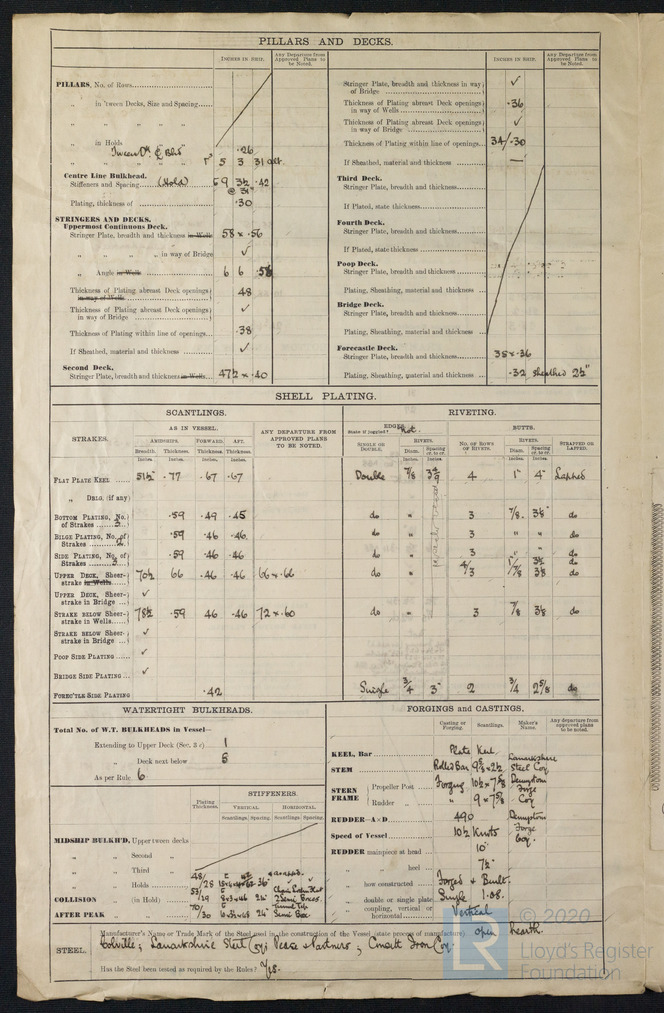 PILLARS AND DECKS.
INCHES IN SHIP.
Any Departure from Approved Plans to be Noted.
INCHES IN SHIP.
Any Departure from Approved Plans to be Noted.
PILLARS, No. of Rows
„ in 'tween Decks, Size and Spacing
„ „ „ „
„ in Holds ·26
„ „ „ „ 5 3 31
Centre Line Bulkhead.
Stiffeners and Spacing (Hold) 6 9 3½ ·42
@ 31"
Plating, thickness of ·30
STRINGERS AND DECKS.
Uppermost Continuous Deck.
Stringer Plate, breadth and thickness in Wells 58 x ·56
„ „ „ „ in way of Bridge ✓
„ Angle in Wells 6 6 ·58
Thickness of Plating abreast Deck openings in way of Wells 48
Thickness of Plating abreast Deck openings in way of Bridge ✓
Thickness of Plating within line of openings ·38
If Sheathed, material and thickness ✓
Second Deck.
Stringer Plate, breadth and thickness in Wells 47½ x ·40
Stringer Plate, breadth and thickness in way of Bridge ✓
Thickness of Plating abreast Deck openings in way of Wells ·36
Thickness of Plating abreast Deck openings in way of Bridge ✓
Thickness of Plating within line of openings 34/·30
If Sheathed, material and thickness —
Third Deck.
Stringer Plate, breadth and thickness
If Plated, state thickness
Fourth Deck.
Stringer Plate, breadth and thickness
If Plated, state thickness
Poop Deck.
Stringer Plate, breadth and thickness
Plating, Sheathing, material and thickness
Bridge Deck.
Stringer Plate, breadth and thickness
Plating, Sheathing, material and thickness
Forecastle Deck.
Stringer Plate, breadth and thickness 38 x ·36
Plating, Sheathing, material and thickness ·32 sheathed 2½"
SHELL PLATING.
SCANTLINGS.
RIVETING.
STRAKES.
AS IN VESSEL.
AMIDSHIPS. FORWARD. AFT.
Breadth. Thickness. Thickness. Thickness.
Inches. Inches. Inches. Inches.
ANY DEPARTURE FROM APPROVED PLANS TO BE NOTED.
EDGES
State if joggled? Not.
SINGLE OR DOUBLE.
RIVETS.
Diam. Spacing cr. to cr.
Inches. Inches.
BUTTS.
No. of ROWS OF RIVETS.
RIVETS.
Diam. Spacing cr. to cr.
Inches. Inches.
STRAPPED OR LAPPED.
FLAT PLATE KEEL 51½" ·77 ·67 ·67 Double 7/8 4 1" 4" Lapped
„ DBLG. (if any)
BOTTOM PLATING, No. of Strakes 3 ·59 ·49 ·45 do „ 3 7/8 3⅛" do
BILGE PLATING, No. of Strakes 2 ·59 ·46 ·46 do „ 3 „ „ do
SIDE PLATING, No. of Strakes 3 ·59 ·46 ·46 do „ 3 „ do
UPPER DECK, Sheerstrake in Wells 70½ 66 ·46 ·46 66 x ·66 do „ 4/3 1"/7/8 3½ 3⅛ do
UPPER DECK, Sheerstrake in Bridge ✓
STRAKE BELOW Sheerstrake in Wells 78½ ·59 46 ·46 72 x ·60 do „ 3 7/8 3⅛ do
STRAKE BELOW Sheerstrake in Bridge ✓
POOP SIDE PLATING ✓
BRIDGE SIDE PLATING ✓
FORECTLE SIDE PLATING ·42 Single 3/4 3" 2 3/4 2⅝ do
WATERTIGHT BULKHEADS.
Total No. of W.T. BULKHEADS in Vessel—
Extending to Upper Deck (Sec. 3 c) 1
„ Deck next below 5
As per Rule 6
Plating Thickness.
STIFFENERS.
VERTICAL. HORIZONTAL.
Scantlings. Spacing. Scantlings. Spacing.
MIDSHIP BULKH'D, Upper tween decks
„ „ Second „
„ „ Third „
„ „ Holds 48/28 36"
COLLISION „ (in Hold) 53/29 24"
AFTER PEAK „ 70/30 24"
FORGINGS and CASTINGS.
Casting or Forging. Scantlings. Maker's Name. Any departure from approved plans to be noted.
KEEL, Bar Plate Keel
STEM Rolled Bar 9⅝ x 2½ Lanarkshire Steel Coy
STERN FRAME Propeller Post Forging 10½ x 7⅝ Dempster Forge Coy
Rudder „ „ 9 x 7⅝
RUDDER—A×D 490 Dempster Forge Coy.
Speed of Vessel 10½ Knots
RUDDER mainpiece at head 10"
„ „ heel 7½"
„ how constructed Forged & Built.
„ double or single plate Single 1·08.
„ coupling, vertical or horizontal Vertical
STEEL.
Manufacturer's Name or Trade Mark of the Steel used in the construction of the Vessel (state process of manufacture) open hearth.
Colville; Lanarkshire Steel Coy; Pease & Partners; Consett Iron Coy.
Has the Steel been tested as required by the Rules? Yes.
© 2020
LR
Lloyd's Register
Foundation